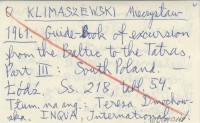 O KLIMASZEWSKI Mieczysław
1961. Guide-Book of excursion
from the Baltic to the Tatras.
Part III: South Poland —
Łódź. Ss. 218, tabl. 54.
Tłum. na ang.: Teresa Dmochow-
ska. INQUA, International